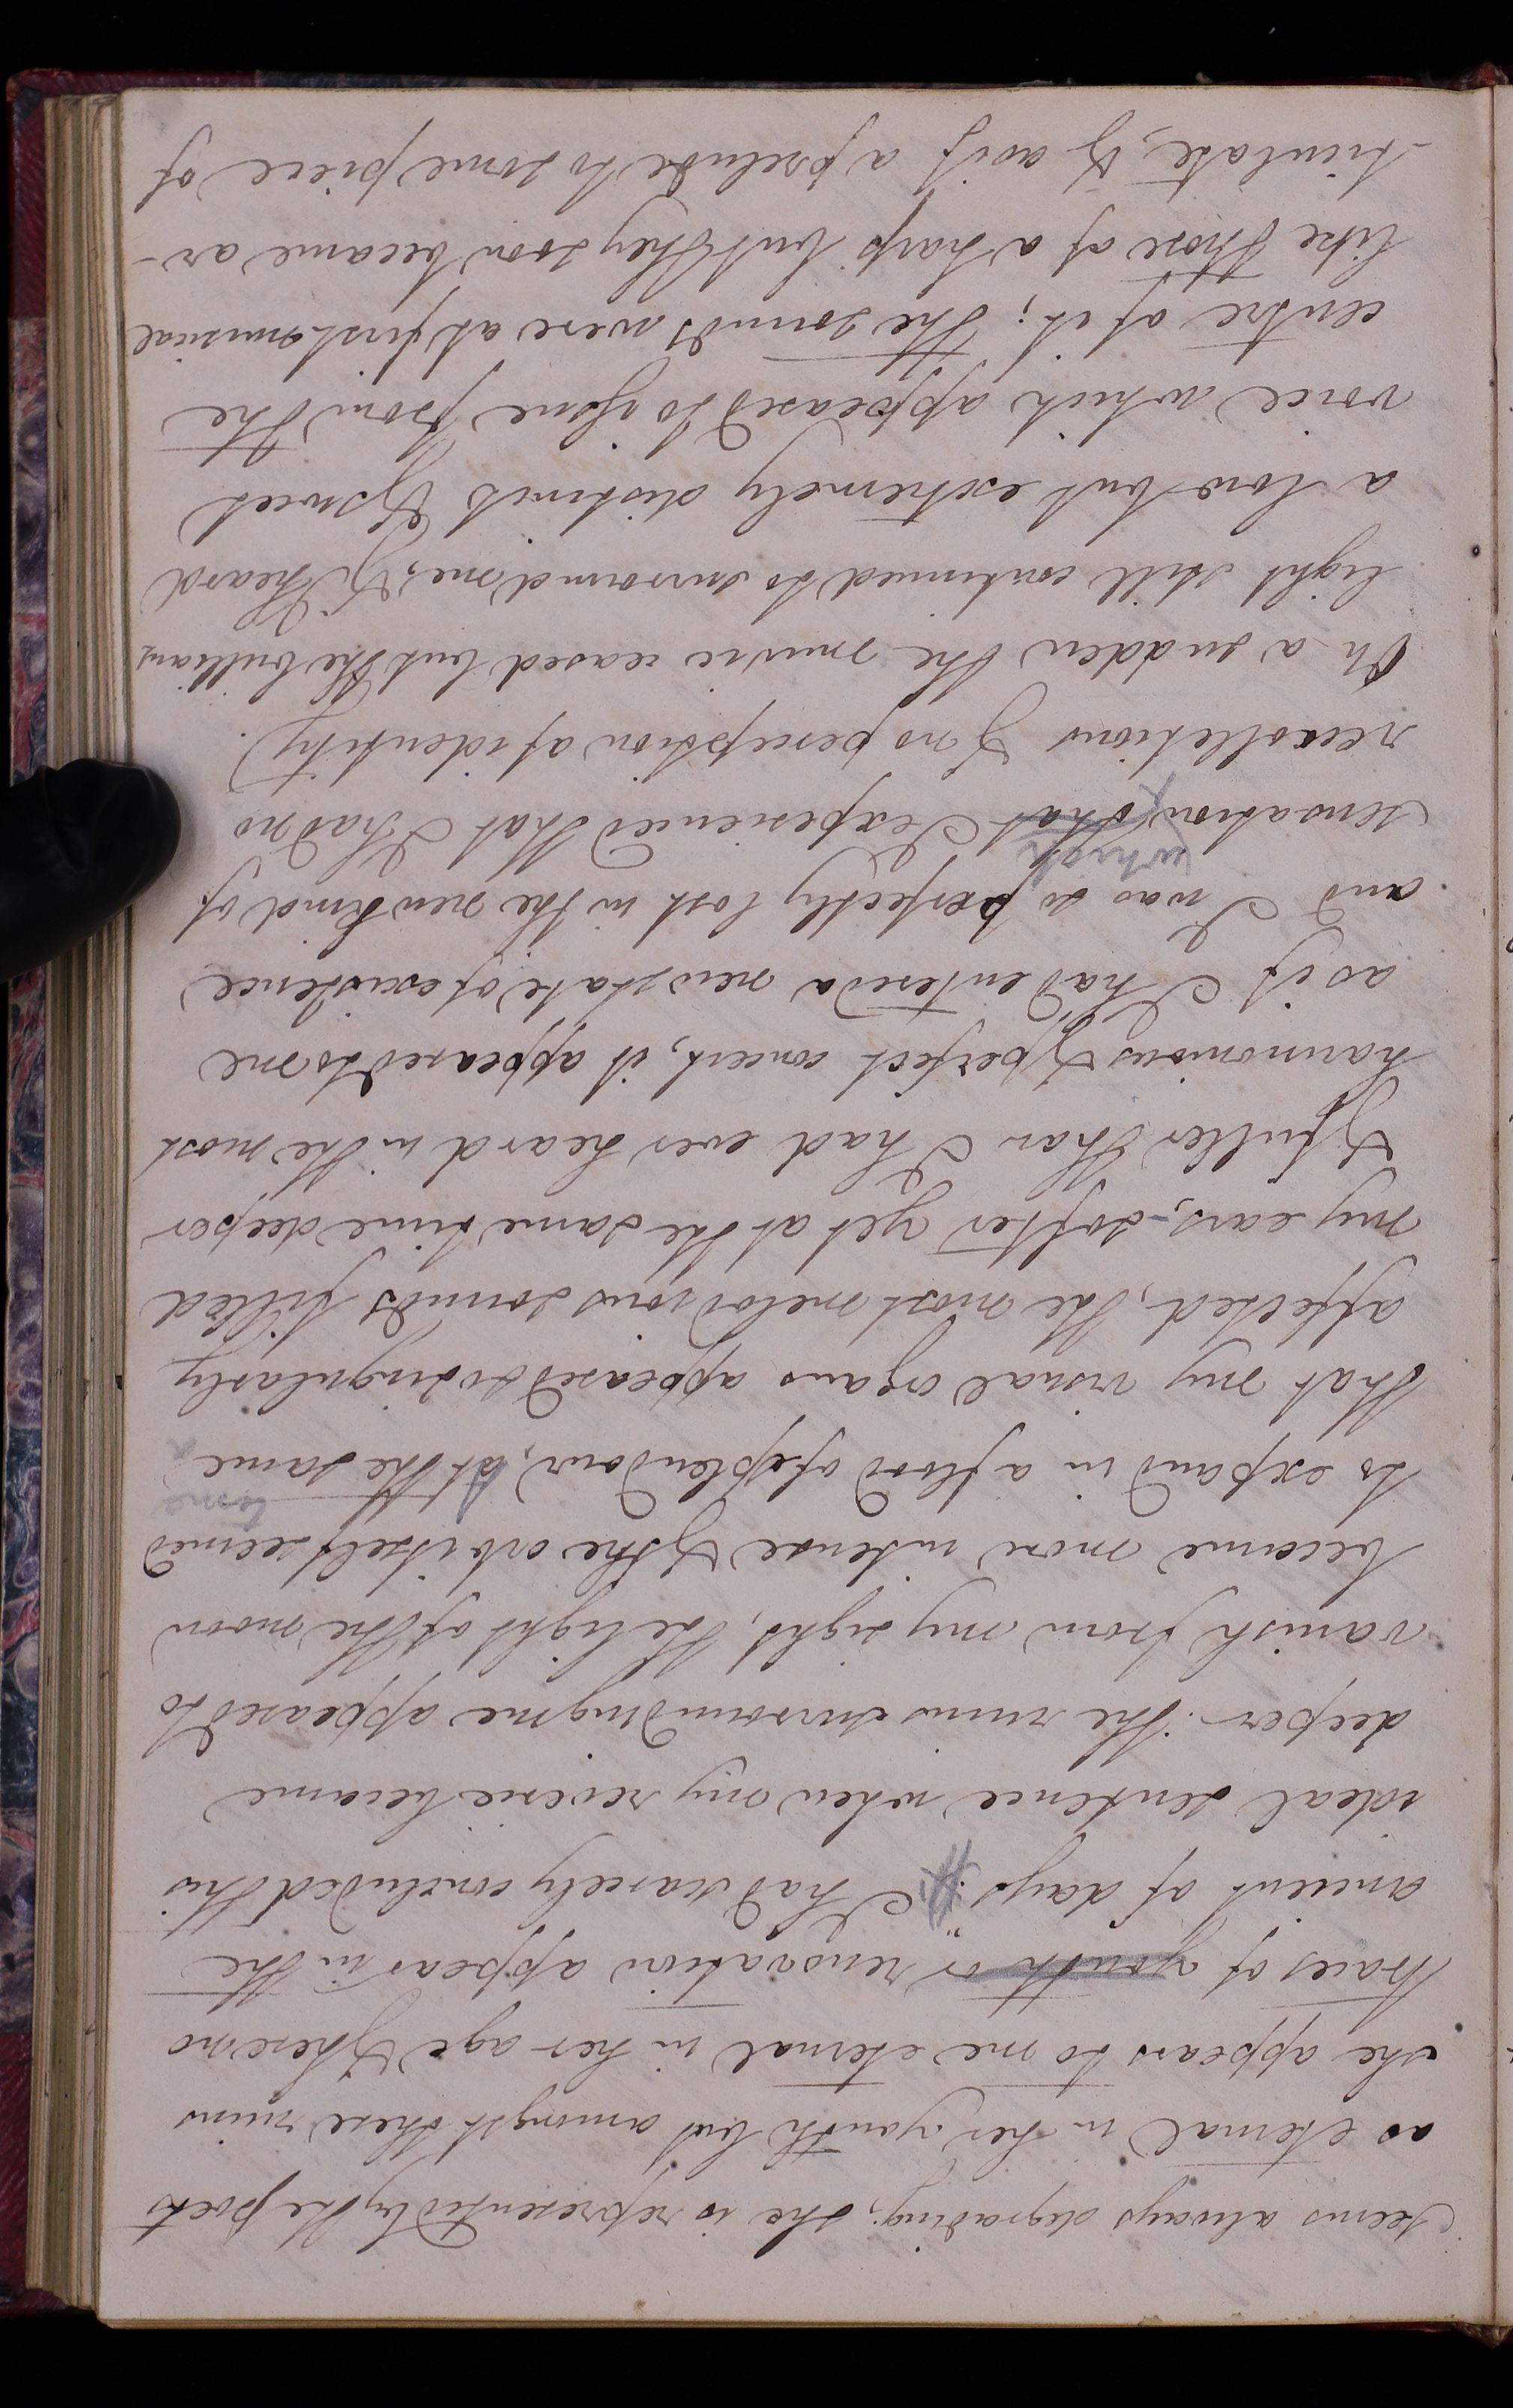 seems always degrading; she is represented by the poets
as eternal in her youth but amongst these ruins
she appears to me eternal in her age & here no
traces of youth or renovation appear in the
ancient of days". I had scarcely concluded this
ideal sentence when my reverie became
deeper. The ruins surrounding me appeared to
vanish from my sight, the light of the moon
became more intense & the orb itself seemed
time
to expand in a flood of splendour, At the same
that my visual organs appeared so singularly
affected, the most melodious sounds filled
my ears, softer yet at the same time deeper
& fuller than I had ever heard in the most
harmonious & perfect concert, it appeared to me
as if I had entered a new state of existence
and I was so perfectly lost in the new kind of
which
sensation that I experienced that I had no
recollections & no perception of identity).
On a sudden the music ceased but the brilliant
light still continued to surround me, & I heard
a low but extremely distinct & sweet
voice which appeared to issue from the
centre of it; the sounds were at first musical
like those of a harp but they soon became ar-
-ticulate, & as if a prelude to some piece of